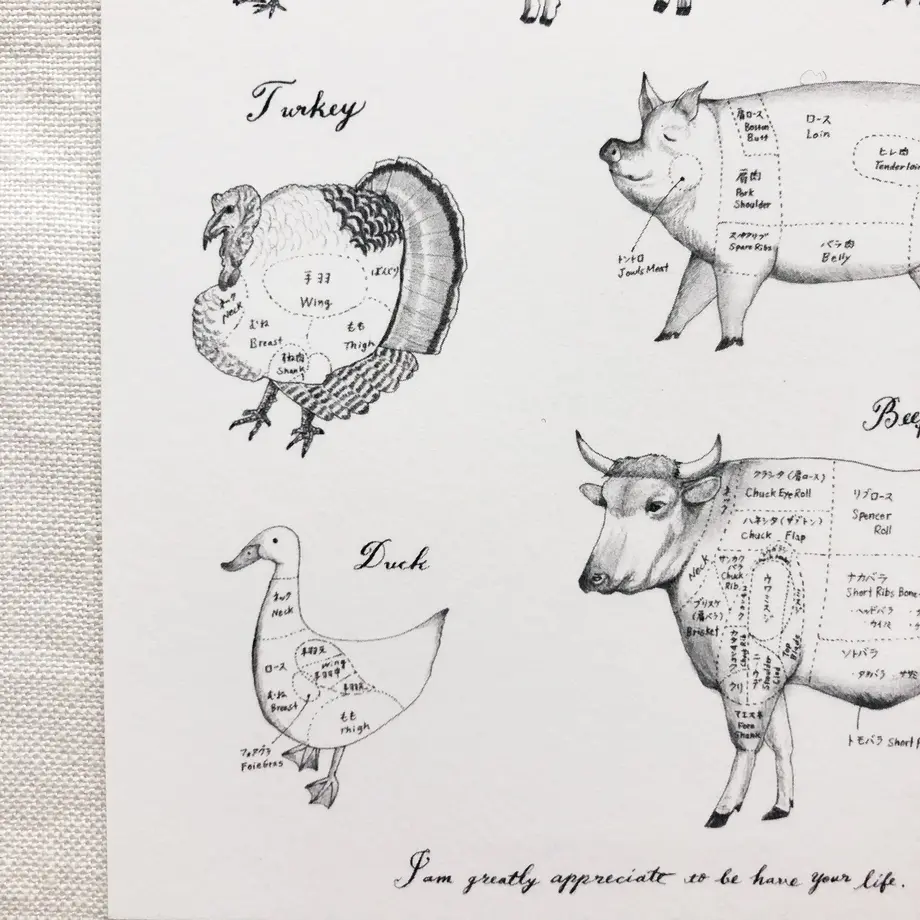 Turkey
手羽
Wing
ネック
Neck
むね
Breast
もも
Thigh
すね肉
Shank
肩ロース
Boston
Butt
ロース
Loin
ヒレ肉
肩肉
Pork
Shoulder
スペアリブ
Spare Ribs
バラ肉
Belly
トントロ
Jowls Meat
Duck
ネック
Neck
ロース
手羽元
Wing
手羽中
手羽先
むね
Breast
もも
Thigh
フォアグラ
Foie Gras
クラシタ(肩ロース)
Chuck Eye Roll
ネック
Neck
ハネシタ(ザブトン)
Chuck Flap
サンカク
バラ
Chuck
Rib
ブリスケ
(肩バラ)
Brisket
クリ
Shoulder
Clod
Top
Blade
マエスネ
Fore
Shank
リブロース
Spencer
Roll
ナカバラ
Short Ribs Bone
・ヘッドバラ
・ウイス
ソトバラ
・タカバラ
トモバラ Short
I am greatly appreciate to be have your life.